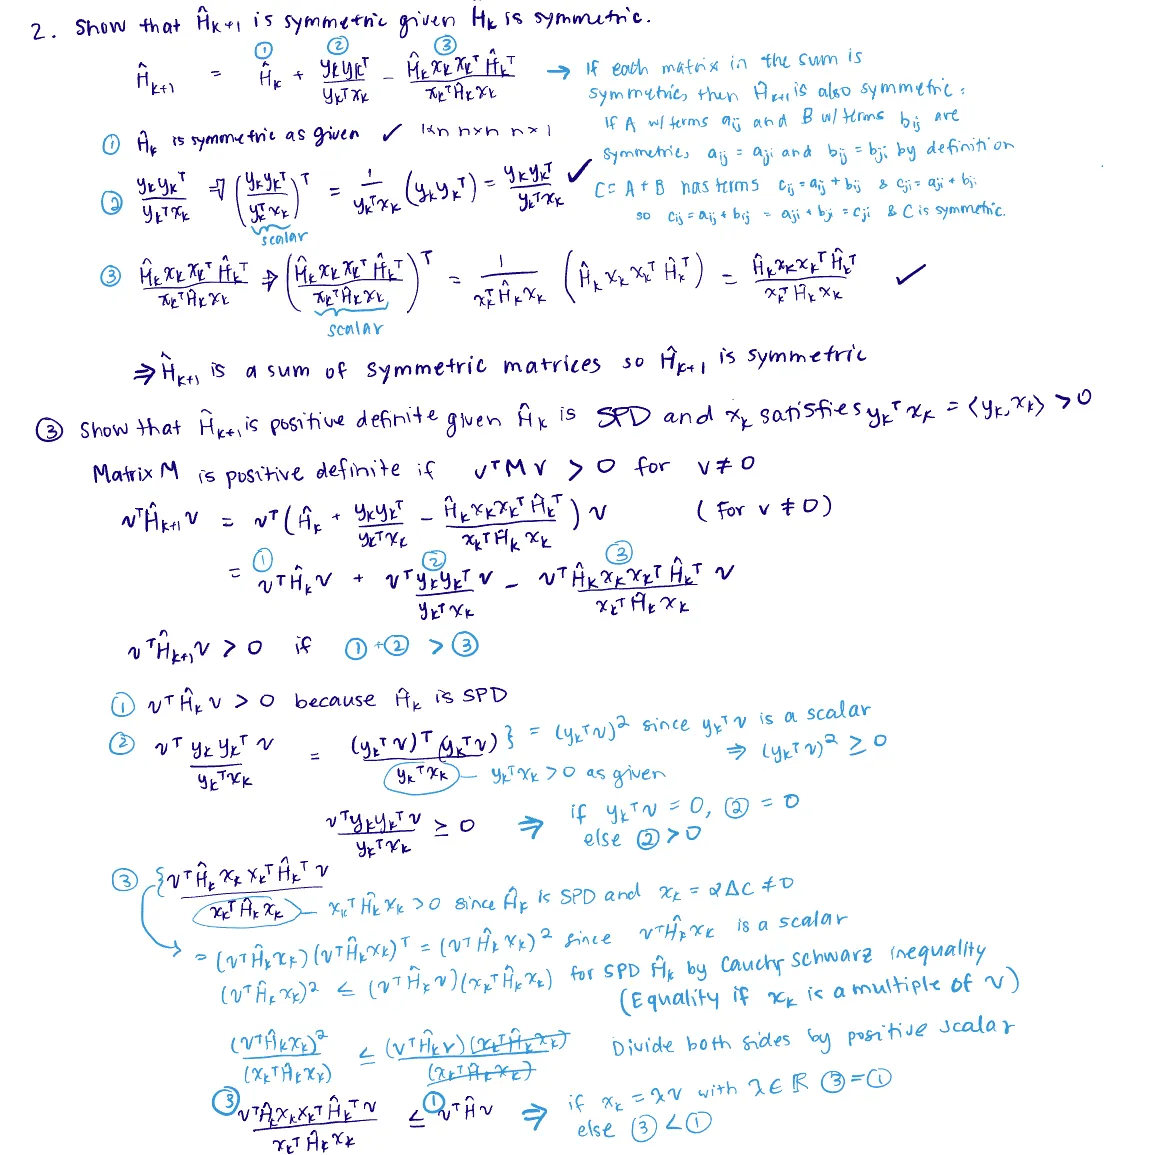 2. Show that Ĥ_{k+1} is symmetric given Ĥ_k is symmetric.
① ② ③
Ĥ_{k+1} = Ĥ_k + \frac{y_k y_k^T}{y_k^T x_k} - \frac{Ĥ_k x_k x_k^T Ĥ_k^T}{x_k^T Ĥ_k x_k} → If each matrix in the sum is
symmetric, then Ĥ_{k+1} is also symmetric:
If A w/ terms a_{ij} and B w/ terms b_{ij} are
symmetric, a_{ij} = a_{ji} and b_{ij} = b_{ji} by definition
C = A + B has terms c_{ij} = a_{ij} + b_{ij} & c_{ji} = a_{ji} + b_{ji}
so c_{ij} = a_{ij} + b_{ij} = a_{ji} + b_{ji} = c_{ji} & C is symmetric.
① Ĥ_k is symmetric as given ✓ 1×n n×n n×1
② \frac{y_k y_k^T}{y_k^T x_k} ⇒ (\frac{y_k y_k^T}{y_k^T x_k})^T = \frac{1}{y_k^T x_k} (y_k y_k^T) = \frac{y_k y_k^T}{y_k^T x_k} ✓
scalar
③ \frac{Ĥ_k x_k x_k^T Ĥ_k^T}{x_k^T Ĥ_k x_k} ⇒ (\frac{Ĥ_k x_k x_k^T Ĥ_k^T}{x_k^T Ĥ_k x_k})^T = \frac{1}{x_k^T Ĥ_k x_k} (Ĥ_k x_k x_k^T Ĥ_k^T) = \frac{Ĥ_k x_k x_k^T Ĥ_k^T}{x_k^T Ĥ_k x_k} ✓
scalar
⇒ Ĥ_{k+1} is a sum of symmetric matrices so Ĥ_{k+1} is symmetric
③ Show that Ĥ_{k+1} is positive definite given Ĥ_k is SPD and x_k satisfies y_k^T x_k = ⟨y_k, x_k⟩ > 0
Matrix M is positive definite if v^T M v > 0 for v ≠ 0
v^T Ĥ_{k+1} v = v^T (Ĥ_k + \frac{y_k y_k^T}{y_k^T x_k} - \frac{Ĥ_k x_k x_k^T Ĥ_k^T}{x_k^T Ĥ_k x_k}) v (for v ≠ 0)
① ② ③
= v^T Ĥ_k v + \frac{v^T y_k y_k^T v}{y_k^T x_k} - \frac{v^T Ĥ_k x_k x_k^T Ĥ_k^T v}{x_k^T Ĥ_k x_k}
v^T Ĥ_{k+1} v > 0 if ① + ② > ③
① v^T Ĥ_k v > 0 because Ĥ_k is SPD
② \frac{v^T y_k y_k^T v}{y_k^T x_k} = \frac{(y_k^T v)^T (y_k^T v)}{y_k^T x_k} } = (y_k^T v)^2 since y_k^T v is a scalar
⇒ (y_k^T v)^2 ≥ 0
y_k^T x_k > 0 as given
\frac{v^T y_k y_k^T v}{y_k^T x_k} ≥ 0 ⇒ if y_k^T v = 0, ② = 0
else ② > 0
③ { \frac{v^T Ĥ_k x_k x_k^T Ĥ_k^T v}{x_k^T Ĥ_k x_k} x_k^T Ĥ_k x_k > 0 since Ĥ_k is SPD and x_k = αΔC ≠ 0
= (v^T Ĥ_k x_k)(v^T Ĥ_k x_k)^T = (v^T Ĥ_k x_k)^2 since v^T Ĥ_k x_k is a scalar
(v^T Ĥ_k x_k)^2 ≤ (v^T Ĥ_k v)(x_k^T Ĥ_k x_k) for SPD Ĥ_k by Cauchy Schwarz inequality
(Equality if x_k is a multiple of v)
\frac{(v^T Ĥ_k x_k)^2}{(x_k^T Ĥ_k x_k)} ≤ \frac{(v^T Ĥ_k v)(x_k^T Ĥ_k x_k)}{(x_k^T Ĥ_k x_k)} Divide both sides by positive scalar
③ \frac{v^T Ĥ_k x_k x_k^T Ĥ_k^T v}{x_k^T Ĥ_k x_k} ≤ ① v^T Ĥ v ⇒ if x_k = λv with λ ∈ ℝ ③ = ①
else ③ < ①